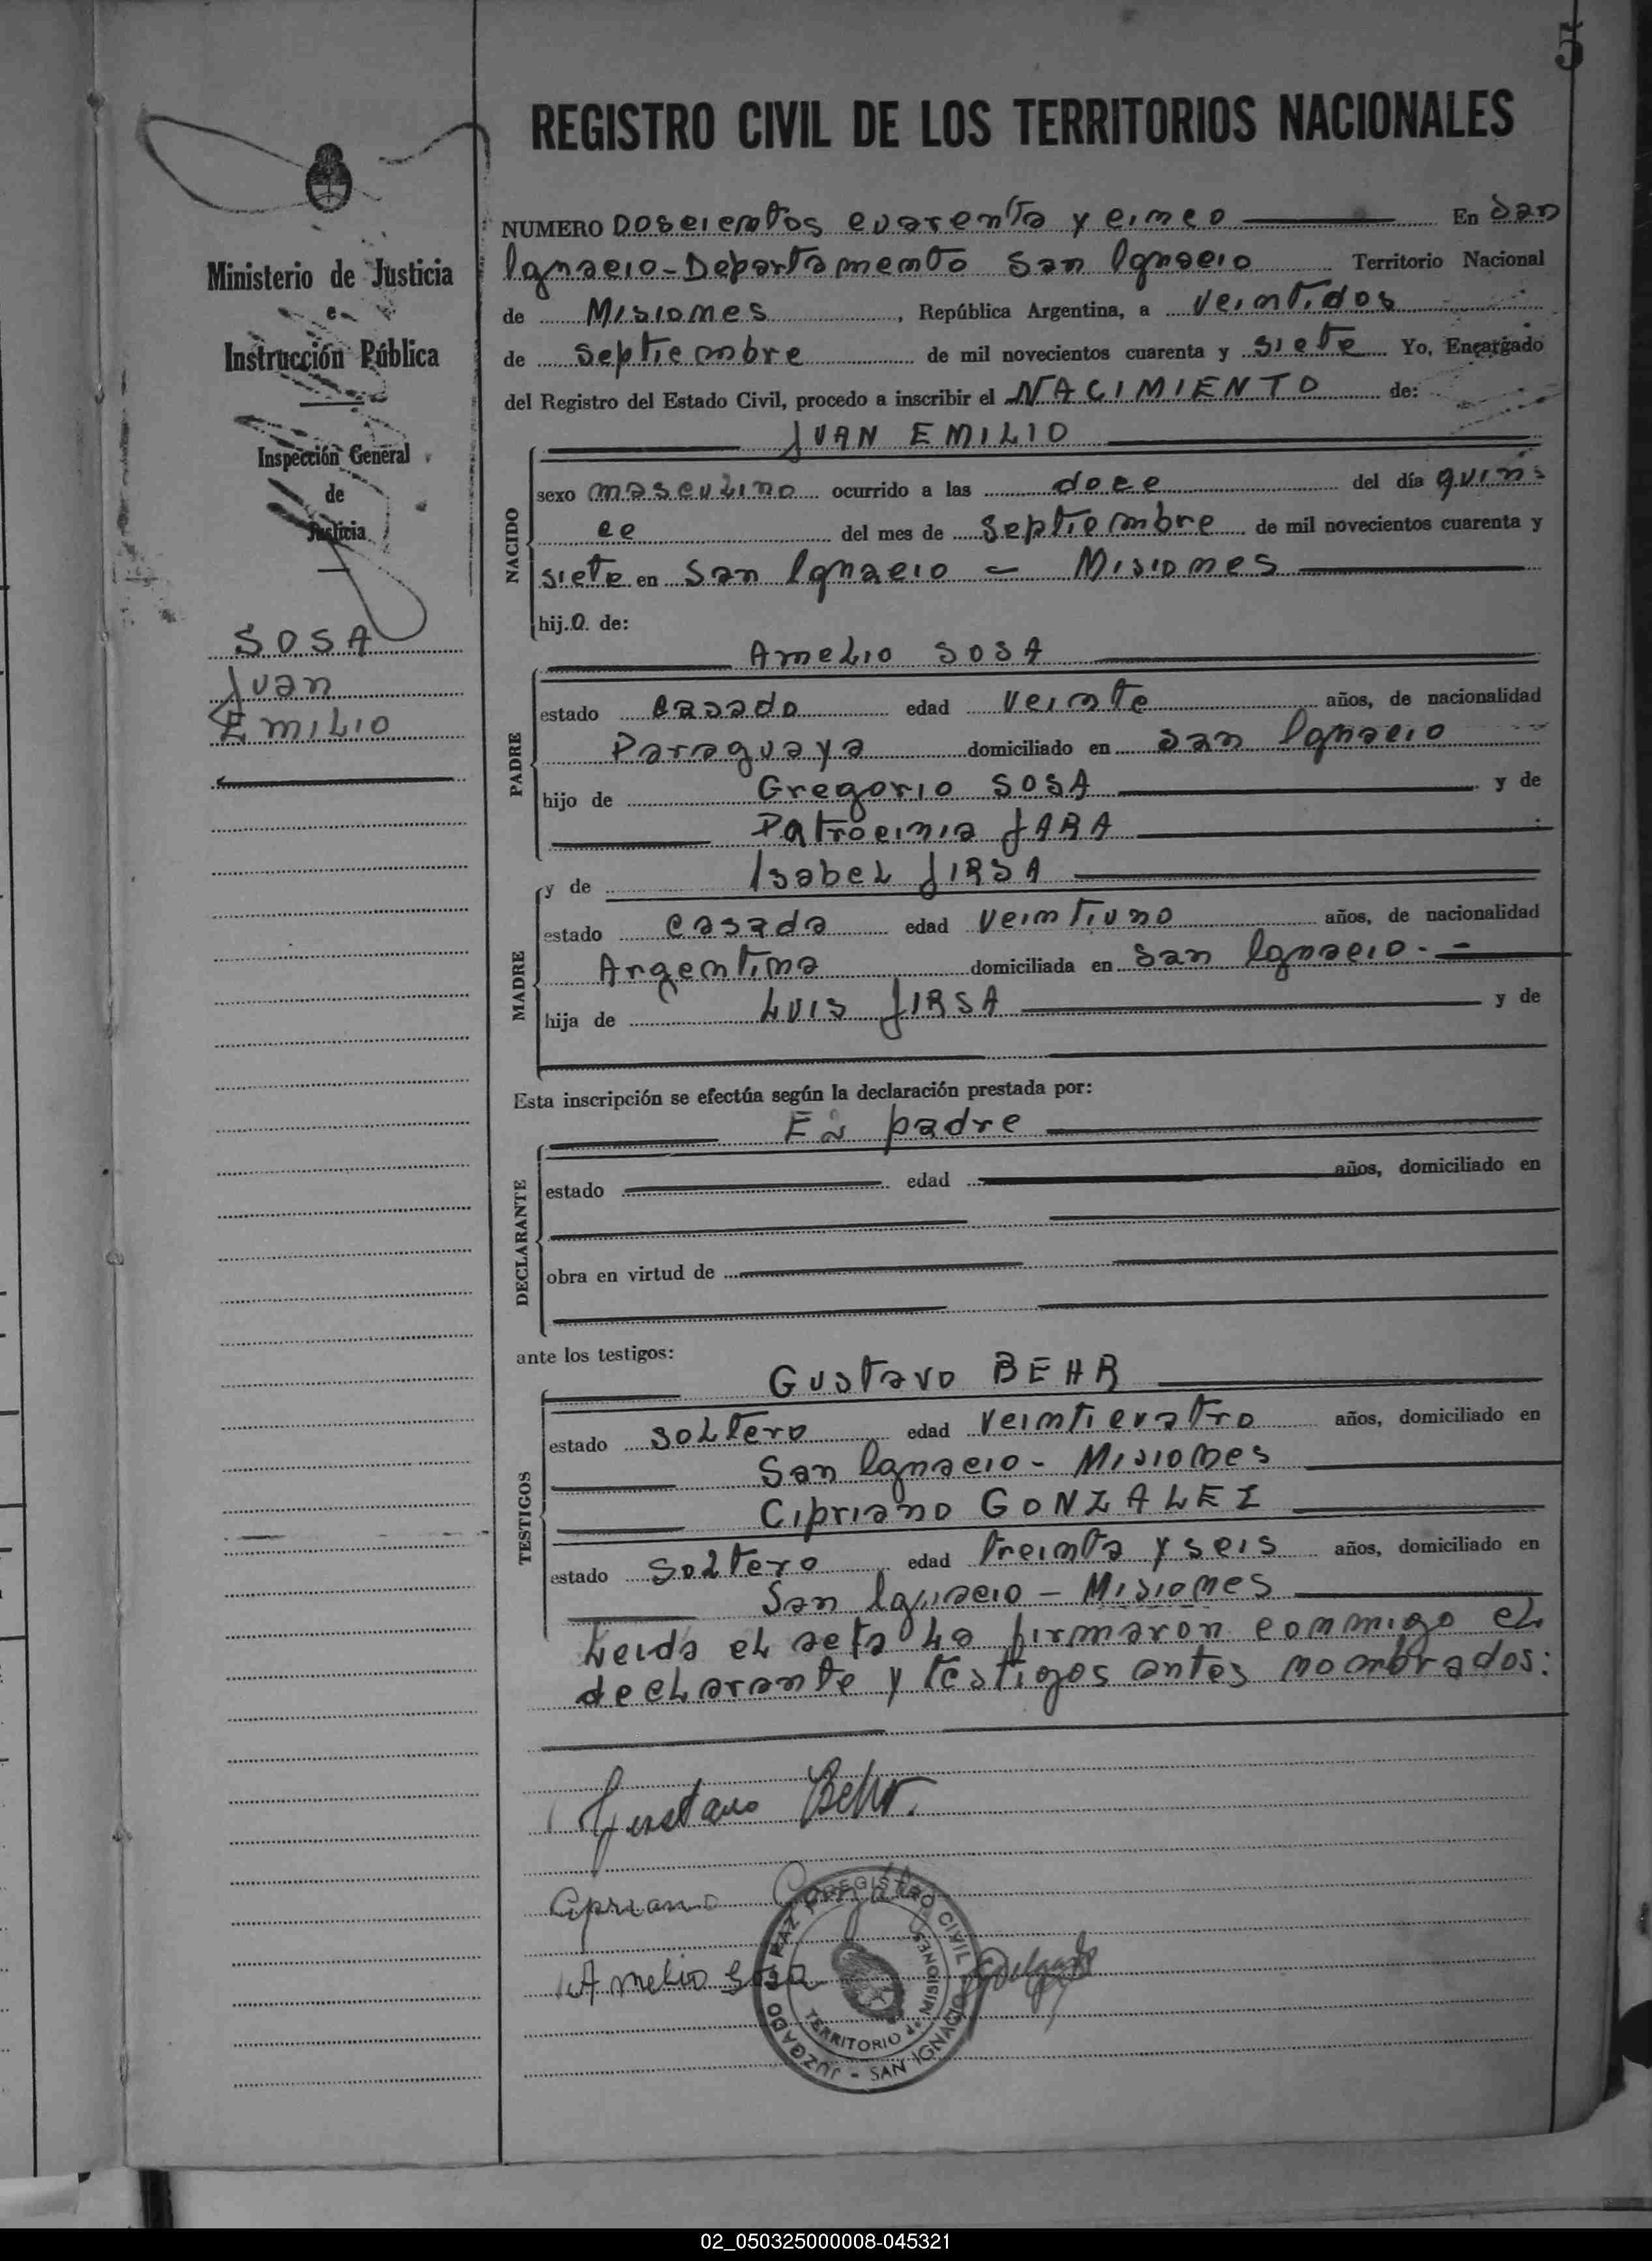 5
REGISTRO CIVIL DE LOS TERRITORIOS NACIONALES
Ministerio de Justicia
e
Instrucción Pública
Inspección General
de
Justicia
SOSA
Juan
Emilio
NUMERO Doscientos cuarenta y cinco En San
Ignacio - Departamento San Ignacio Territorio Nacional
de Misiones, República Argentina, a veintidos
de septiembre de mil novecientos cuarenta y siete Yo, Encargado
del Registro del Estado Civil, procedo a inscribir el NACIMIENTO de:
JUAN EMILIO
NACIDO
sexo masculino ocurrido a las doce del día quin-
ce del mes de septiembre de mil novecientos cuarenta y
siete en San Ignacio - Misiones
hijo de:
Amelio SOSA
PADRE
estado casado edad veinte años, de nacionalidad
Paraguaya domiciliado en San Ignacio
hijo de Gregorio SOSA y de
Patrocinia JARA
y de Isabel JIRSA
MADRE
estado casada edad veintiuno años, de nacionalidad
Argentina domiciliada en San Ignacio.-
hija de Luis JIRSA y de
Esta inscripción se efectúa según la declaración prestada por:
El padre
DECLARANTE
estado edad años, domiciliado en
obra en virtud de
ante los testigos:
Gustavo BEHR
TESTIGOS
estado soltero edad veinticuatro años, domiciliado en
San Ignacio - Misiones
Cipriano GONZALEZ
estado soltero edad treinta y seis años, domiciliado en
San Ignacio - Misiones
Leida el acta la firmaron conmigo el
declarante y testigos antes nombrados:
Gustavo Behr.
Cipriano
Amelio Sosa
JUZGADO DE PAZ Y REGISTRO CIVIL
SAN IGNACIO
TERRITORIO de MISIONES
02_050325000008-045321